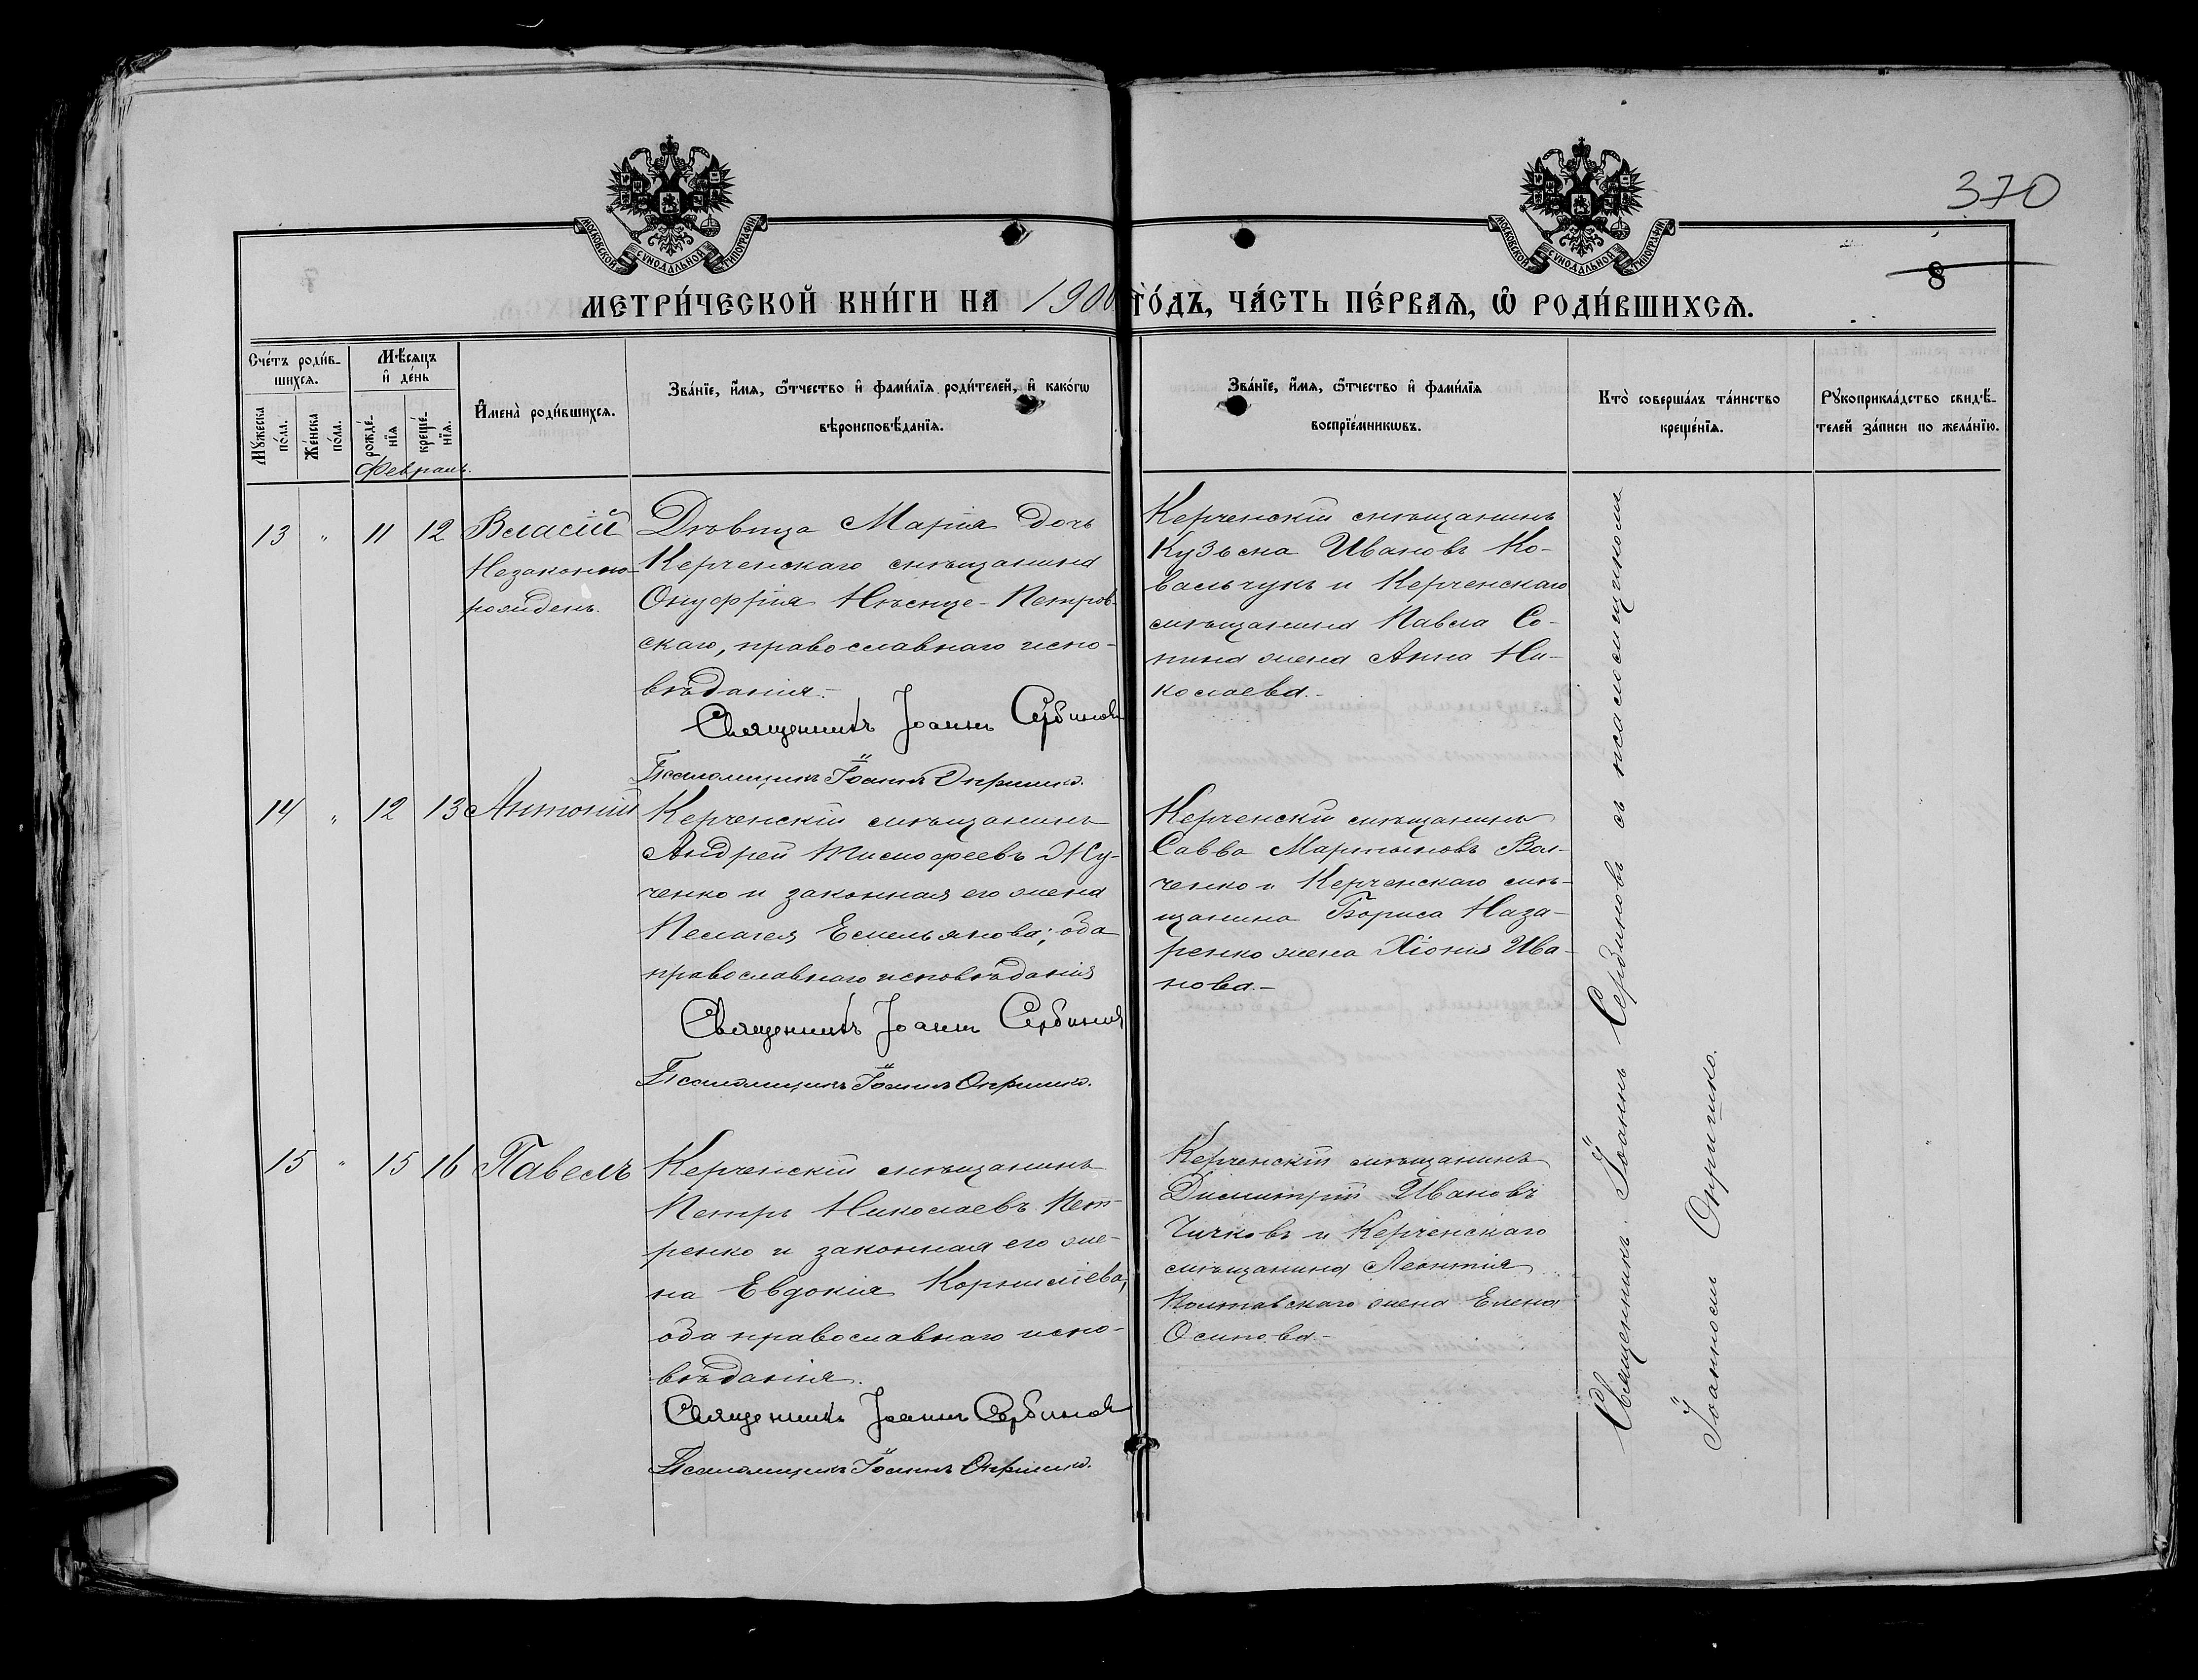 370
8
МОСКОВСКОЙ СѴНОДАЛЬНОЙ ТИПОГРАФІИ
МОСКОВСКОЙ СѴНОДАЛЬНОЙ ТИПОГРАФІИ
МЕТРИ́ЧЕСКОЙ КНИ́ГИ НА 1900 ГО́ДЪ, ЧА́СТЬ ПЕ́РВАѦ, Ѡ҆ РОДИ́ВШИХСѦ.
Сче́тъ роди́в-
шихсѧ.
Мѣ́сѧцъ
и҆ де́нь
Мꙋ́жеска по́ла.
Же́нска по́ла.
рожде́-
нїѧ
креще́-
нїѧ.
И҆мена̀ роди́вшихсѧ.
Зва́нїе, и҆́мѧ, ѻ҆́тчество и҆ фами́лїѧ роди́телей, и҆ како́гѡ
вѣроисповѣ́данїѧ.
Зва́нїе, и҆́мѧ, ѻ҆́тчество и҆ фами́лїѧ
воспрїе́мникѡвъ.
Кто̀ соверша́лъ та́инство
креще́нїѧ.
Рꙋкоприкла́дство свидѣ́-
телей за́писи по жела́нїю.
Февраль.
13 " 11 12 Власій
Незаконно-
рожденъ.
Дѣвица Марія дочь
Керченскаго мѣщанина
Онуфрія Нѣсще-Петров-
скаго, православнаго испо-
вѣданія.-
Священникъ Іоаннъ Сербиновъ
Псаломщикъ Іоаннъ Опришко.
Керченскій мѣщанинъ
Кузьма Ивановъ Ко-
вальчукъ и Керченскаго
мѣщанина Павла Со-
пина жена Анна Ни-
колаева.-
14 " 12 13 Антоній
Керченскій мѣщанинъ
Андрей Тимофеевъ Жу-
ченко и законная его жена
Пелагея Емельянова; оба
православнаго исповѣданія
Священникъ Іоаннъ Сербиновъ
Псаломщикъ Іоаннъ Опришко.
Керченскій мѣщанинъ
Савва Мартыновъ Вал-
ченко и Керченскаго мѣ-
щанина Бориса Наза-
ренко жена Хіонія Ива-
нова.-
15 " 15 16 Павелъ
Керченскій мѣщанинъ
Петръ Николаевъ Пет-
ренко и законная его же-
на Евдокія Корниліева,
оба православнаго испо-
вѣданія.
Священникъ Іоаннъ Сербиновъ
Псаломщикъ Іоаннъ Опришко.
Керченскій мѣщанинъ
Димитрій Ивановъ
Чичковъ и Керченскаго
мѣщанина Леонтія
Полтавскаго жена Елена
Осипова.-
Священникъ Іоаннъ Сербиновъ съ псаломщикомъ
Іоанномъ Опришко.